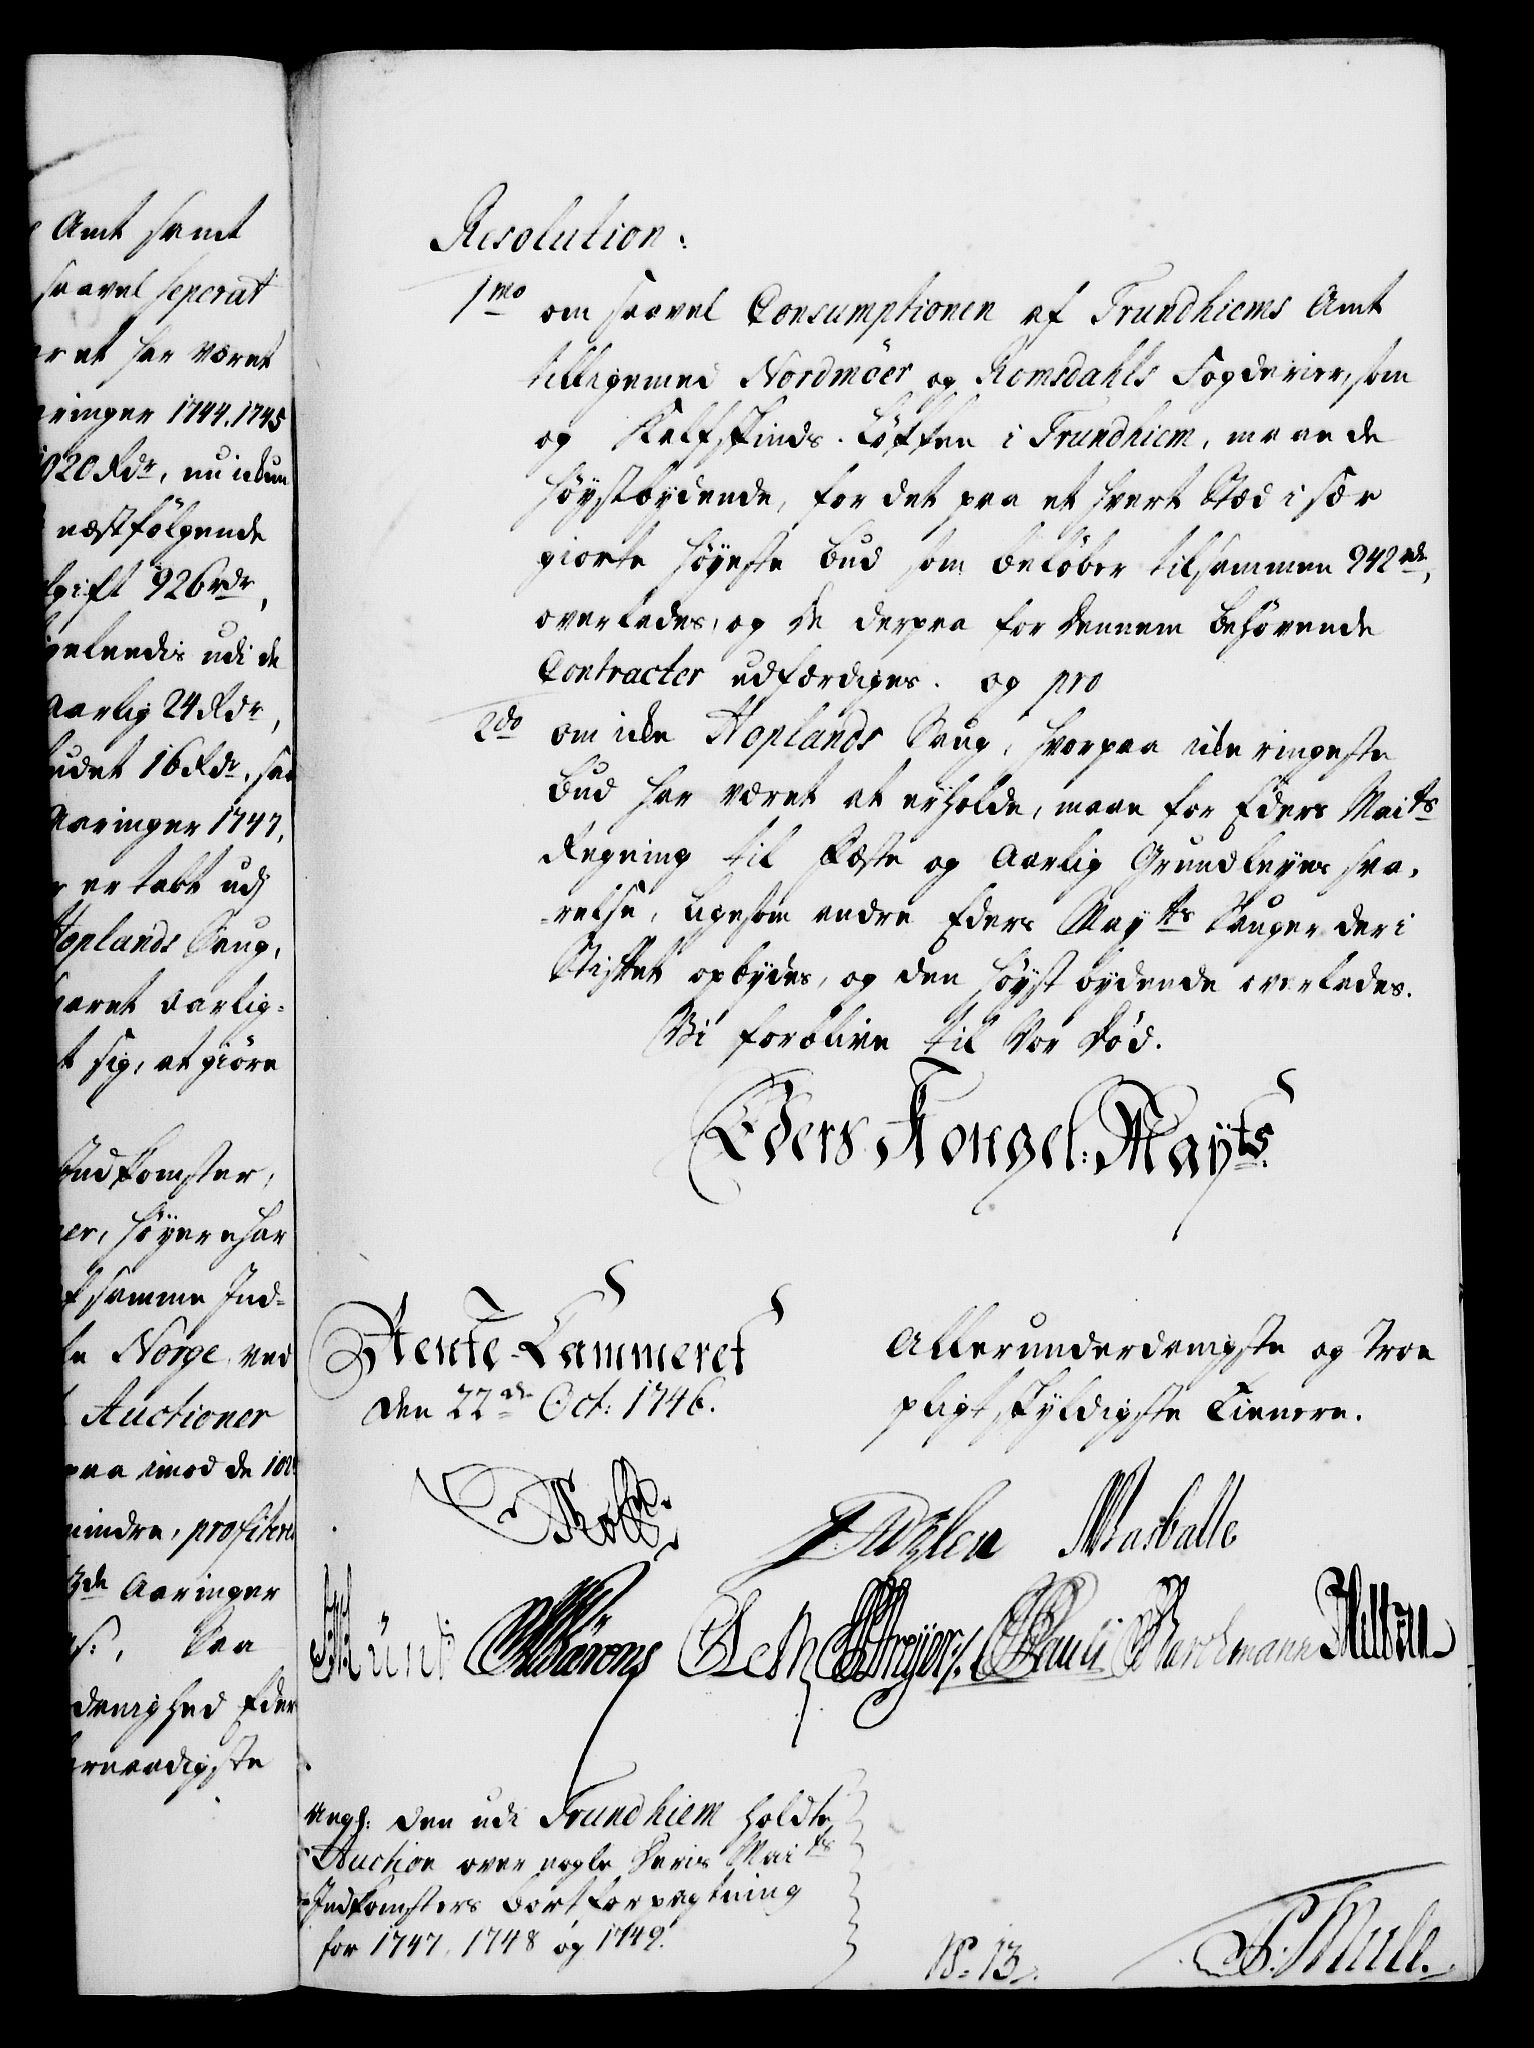 Amt samt
saavel seperat
et har været
aringer 1744. 1745
1020 Rdr, nu ickun
næstfölgende
gift 926 rdr,
udi de
Aarlig 24 Rdr,
budet 16 Rdr, saa
Aaringer 1747,
er tabt udj
Hoplands Saug,
svaret Aarlig-
sig, at giöre
Indkomster,
höyere har
samme Ind-
Norge ved
Auctioner
paa imod de
mindre, profitere
3de Aaringer
Saa
Resolution:
1mo om saavel Consumptionen af Trundhiems Amt
tilligemed Nordmöer og Romsdahls Fogderier, som
og Kalfskinds. Lökken i Trundhiem, maae de
höystbydende, for det paa et hvert Stæd i sær
giorte höyeste bud som belöber tilsammen 942 rdr,
overlades, og de derpaa for dennem behövende
Contracter udfærdiges. og pro
2do om icke Hoplands Saug, hvorpaa icke ringeste
bud har været at erholde, maae for Eders Maits
Regning til Fæste og Aarlig Grundleyes sva-
-relse, ligesom andre Eders Mayts Sauger der i
Stiftet opbydes, og den höystbydende overlades.
Vi forblive til Vor Död.
Eders Kongel: Mayts
Rente-Cammeret
den 22de Oct: 1746.
Allerunderdanigste og Troe
pligtskyldigste Tienere.
Masballe
Pauli
Ang: den udi Trundhiem holdte
Auction over nogle Deris Maits
Indkomsters bortforpagtning
for 1747, 1748 og 1749.
No. 13.
P. Mule.